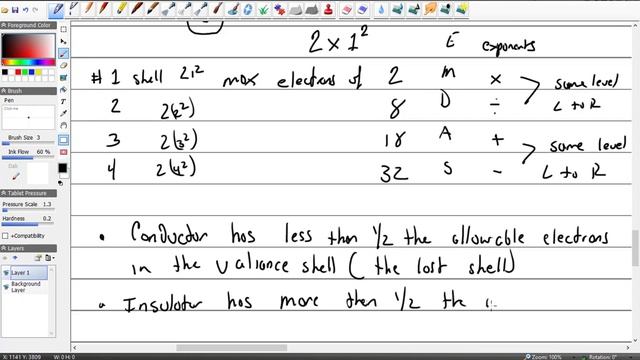 Foreground Color
2 x 1²
E exponents
#1 shell 2 1² max electrons of 2 M × same level
2 2(2²) 8 D ÷ L to R
3 2(3²) 18 A + same level
4 2(4²) 32 S - L to R
• Conductor has less then 1/2 the allowable electrons
in the valiance shell (the last shell)
• Insulator has more then 1/2 the
Brush
Pen
Brush Size 3
Ink Flow 60%
Tablet Pressure
Pressure Scale 1.3
Hardness 0.2
+Compatibility
Layers
Layer 1
Background Layer
X: 1141 Y: 3809
W: 0 H: 0
Zoom: 100%
Rotation: 0°